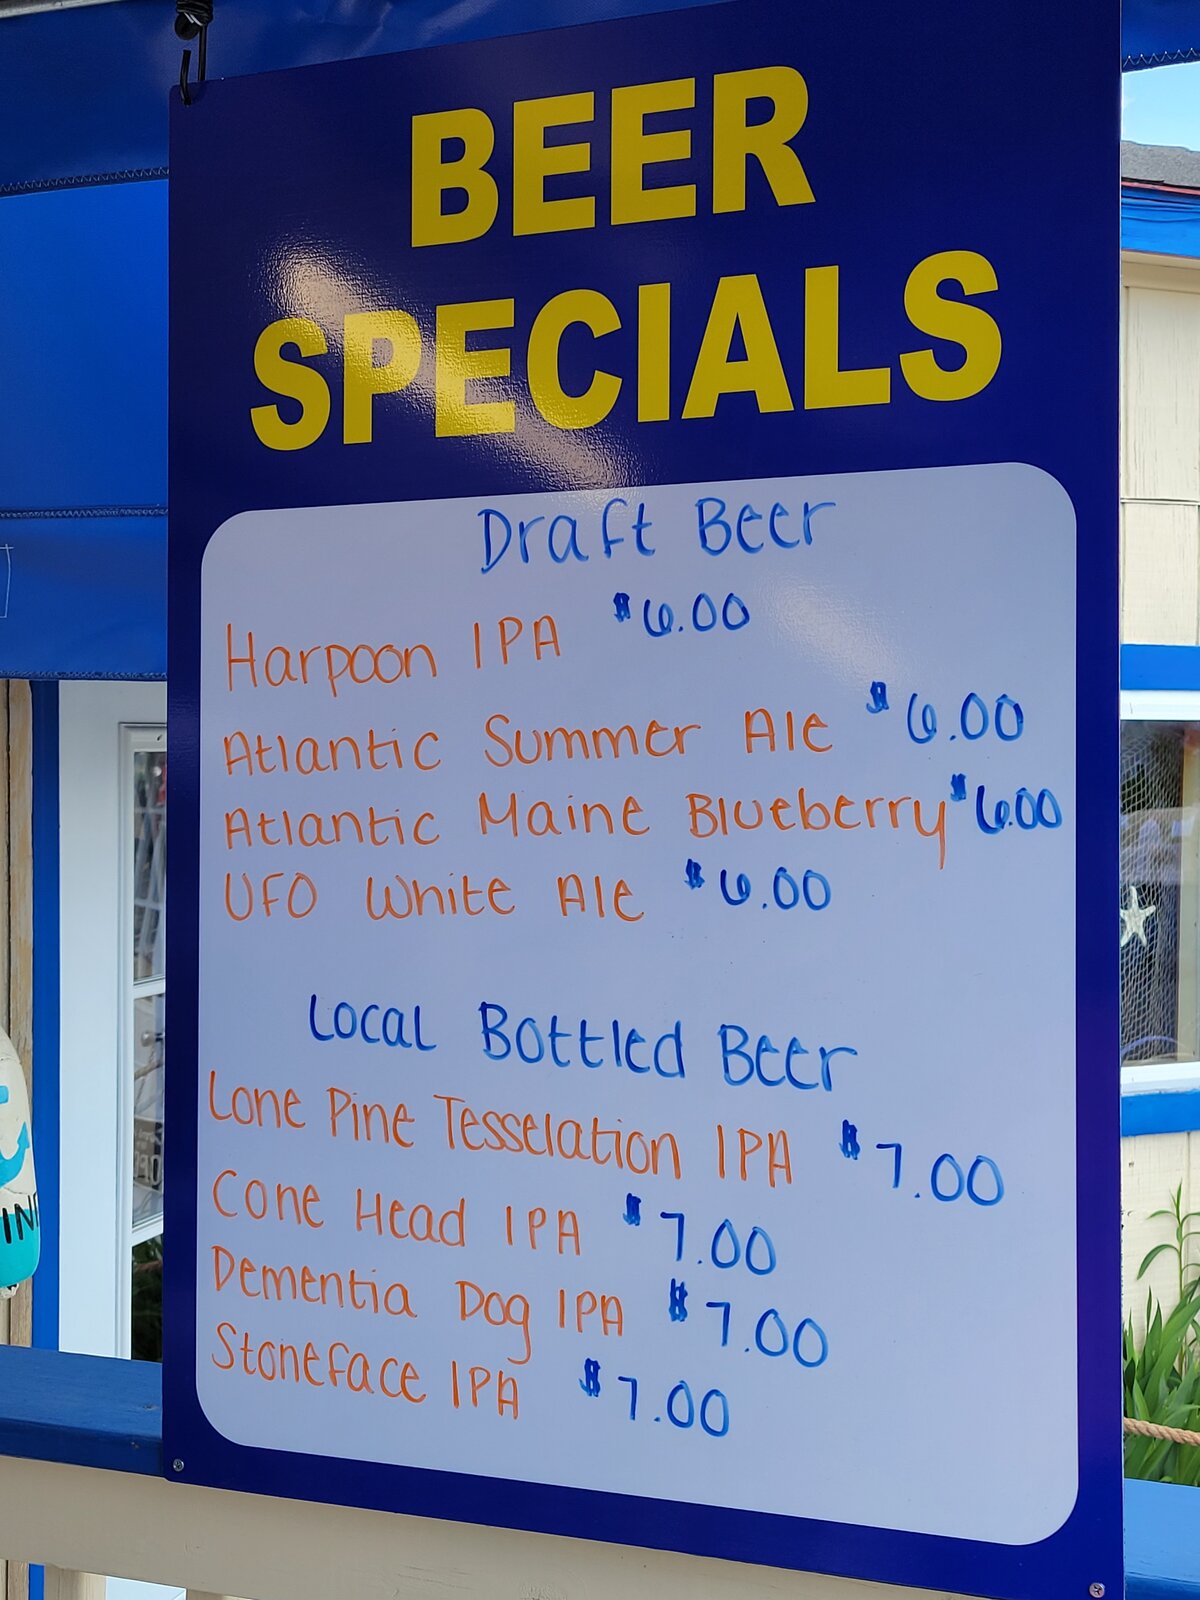 BEER
SPECIALS
Draft Beer
Harpoon IPA $6.00
Atlantic Summer Ale $6.00
Atlantic Maine Blueberry $6.00
UFO White Ale $6.00
Local Bottled Beer
Lone Pine Tesselation IPA $7.00
Cone Head IPA $7.00
Dementia Dog IPA $7.00
Stoneface IPA $7.00